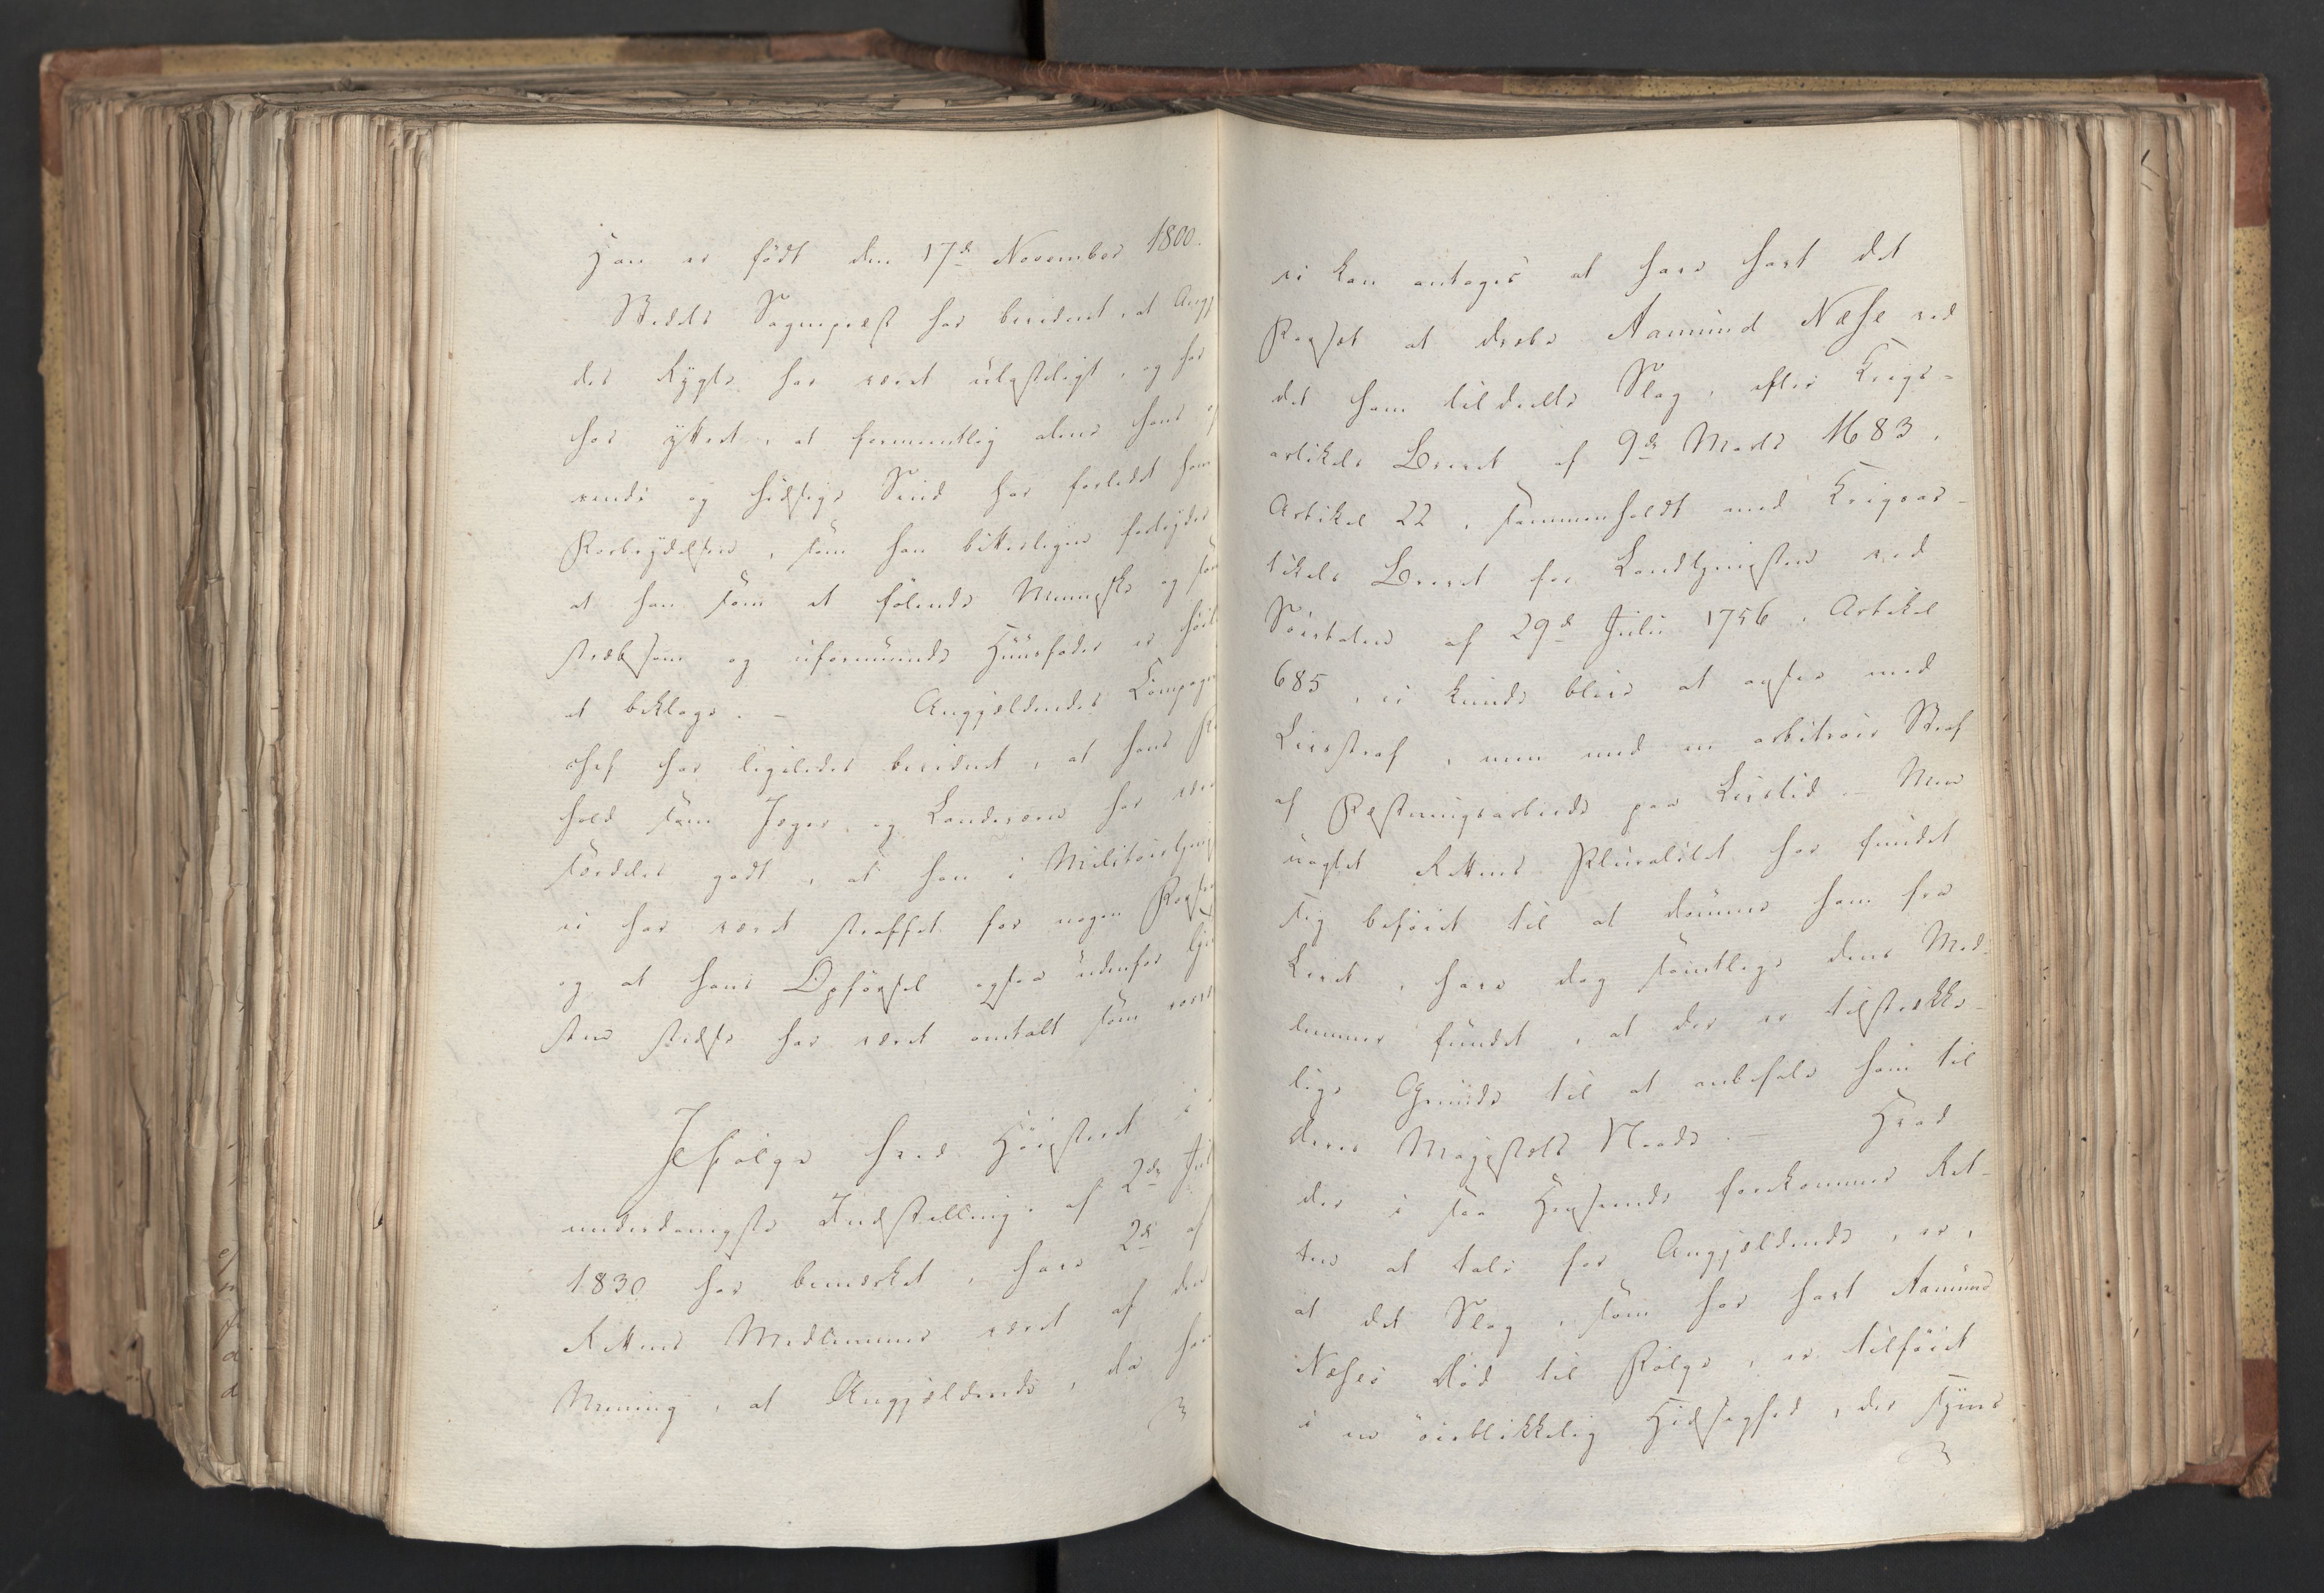 Han er født den 17de November 1800.
Stedets Sognepræst har bevidnet, at Angj
des Rygte har været ulasteligt, og har
har yttret, at formeentlig alene hans
rende og hidsige Sind har forledet ham
Forbrydelsen, som han bitterligen fortryder
at han som et følende Menneske og som
stræbsom og uformuende Huusfader er høil
at beklage. – Angjældendes Compagni
chef har ligeledes bevidnet, at hans For
hold som Jæger og Landeværn har vær
særdeles godt, at han i Militairtjene
ei har været straffet for nogen Forse
og at hans Opførsel ogsaa udenfor Tjene
sten stedse har været omtalt som
Ifølge hvad Høiesteret i
underdanigste Indstilling af 2de Jul
1830 har bemærket, have 2de af
Rettens Medlemmer været af den
Mening, at Angjældende, da han
ei kan antages at have havt det
Forsæt at dræbe Aamund Næse ved
det ham tildeelte Slag, efter Krigs-
artikels Brevet af 9de Marts 1683,
Artikel 22, sammenholdt med Krigsar-
tikels Brevet for Landtjenesten ved
Søeetaten af 29de Julii 1756, Artikel
685, ei kunde blive at ansee med
Livsstraf, men med en arbitrair Straf
af Fæstningsarbeide paa Livstid. – Men
uagtet Rettens Pluralitet har fundet
sig beføiet til at dømme ham fra
Livet, have dog samtlige dens Med-
lemmer fundet, at der er tilstrække-
lige Grunde til at anbefale ham til
Deres Majestæts Naade. – Hvad
der i saa Henseende forekommer Ret-
ten at tale for Angjældende, er,
at det Slag, som har havt Aamund
Næses Død til Følge, er tilføiet
i en øieblikkelig Hidsighed, der synes